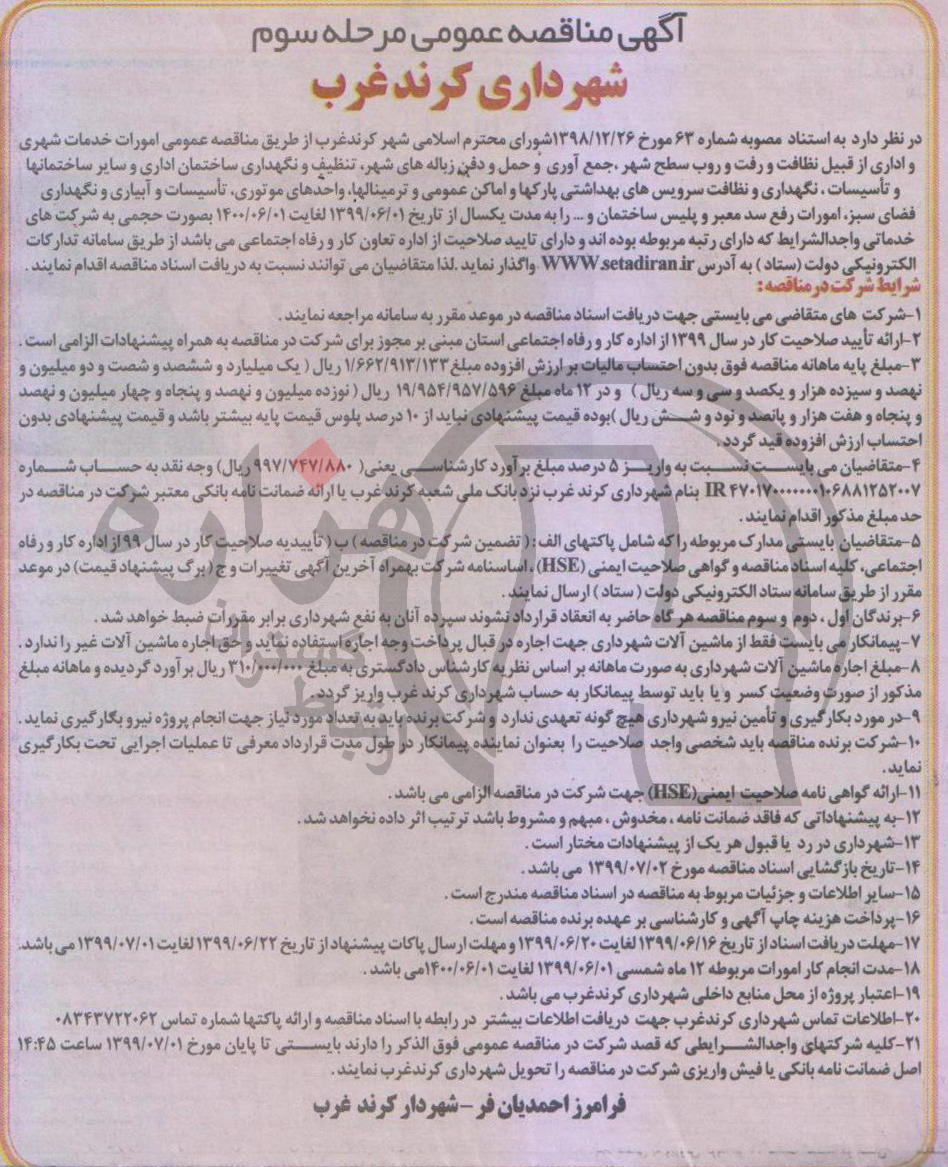 آگهی مناقصه عمومی مرحله سوم
شهرداری کرند غرب
در نظر دارد به استناد مصوبه شماره ۶۳ مورخ ۱۳۹۸/۱۲/۲۶شورای محترم اسلامی شهر کرندغرب از طریق مناقصه عمومی امورات خدمات شهری
و اداری از قبیل نظافت و رفت و روب سطح شهر ،جمع آوری و حمل و دفن زباله های شهر، تنظیف و نگهداری ساختمان اداری و سایر ساختمانها
و تأسیسات ، نگهداری و نظافت سرویس های بهداشتی پارکها و اماکن عمومی و ترمینالها، واحدهای موتوری، تأسیسات و آبیاری و نگهداری
فضای سبز، امورات رفع سد معبر و پلیس ساختمان و ... را به مدت یکسال از تاریخ ۱۳۹۹/۰۶/۰۱ لغایت ۱۴۰۰/۰۶/۰۱ بصورت حجمی به شرکت های
خدماتی واجدالشرایط که دارای رتبه مربوطه بوده اند و دارای تایید صلاحیت از اداره تعاون کار و رفاه اجتماعی می باشد از طریق سامانه تدارکات
الکترونیکی دولت (ستاد ) به آدرس WWW.setadiran.ir واگذار نماید .لذا متقاضیان می توانند نسبت به دریافت اسناد مناقصه اقدام نمایند .
شرایط شرکت در مناقصه :
۱-شرکت های متقاضی می بایستی جهت دریافت اسناد مناقصه در موعد مقرر به سامانه مراجعه نمایند .
۲-ارائه تأیید صلاحیت کار در سال ۱۳۹۹ از اداره کار و رفاه اجتماعی استان مبنی بر مجوز برای شرکت در مناقصه به همراه پیشنهادات الزامی است .
۳-مبلغ پایه ماهانه مناقصه فوق بدون احتساب مالیات بر ارزش افزوده مبلغ ۱/۶۶۲/۹۱۳/۱۳۳ ریال ( یک میلیارد و ششصد و شصت و دو میلیون و
نهصد و سیزده هزار و یکصد و سی و سه ریال ) و در ۱۲ ماه مبلغ ۱۹/۹۵۴/۹۵۷/۵۹۶ ریال ( نوزده میلیون و نهصد و پنجاه و چهار میلیون و نهصد
و پنجاه و هفت هزار و پانصد و نود و شــش ریال )بوده قیمت پیشنهادی نباید از ۱۰ درصد پلوس قیمت پایه بیشتر باشد و قیمت پیشنهادی بدون
احتساب ارزش افزوده قید گردد .
۴-متقاضیان می بایســت نسـبت به واریــز ۵ درصد مبلغ برآورد کارشناســی یعنی( ۹۹۷/۷۴۷/۸۸۰ ریال) وجه نقد به حســاب شــماره
IR ۴۷۰۱۷۰۰۰۰۰۰۰۱۰۶۸۸۱۲۵۲۰۰۷ بنام شهرداری کرند غرب نزد بانک ملی شعبه کرند غرب یا ارائه ضمانت نامه بانکی معتبر شرکت در مناقصه در
حد مبلغ مذکور اقدام نمایند .
۵-متقاضیان بایستی مدارک مربوطه را که شامل پاکتهای الف : ( تضمین شرکت در مناقصه ) ب ( تأییدیه صلاحیت کار در سال ۹۹ از اداره کار و رفاه
اجتماعی، کلیه اسناد مناقصه و گواهی صلاحیت ایمنی (HSE) ، اساسنامه شرکت بهمراه آخرین آگهی تغییرات و ج ( برگ پیشنهاد قیمت) در موعد
مقرر از طریق سامانه ستاد الکترونیکی دولت ( ستاد ) ارسال نمایند .
۶-برندگان اول ، دوم و سوم مناقصه هر گاه حاضر به انعقاد قرارداد نشوند سپرده آنان به نفع شهرداری برابر مقررات ضبط خواهد شد .
۷-پیمانکار می بایست فقط از ماشین آلات شهرداری جهت اجاره در قبال پرداخت وجه اجاره استفاده نماید و حق اجاره ماشین آلات غیر را ندارد .
۸-مبلغ اجاره ماشین آلات شهرداری به صورت ماهانه بر اساس نظریه کارشناس دادگستری به مبلغ ۳۱۰/۰۰۰/۰۰۰ ریال برآورد گردیده و ماهانه مبلغ
مذکور از صورت وضعیت کسر و یا باید توسط پیمانکار به حساب شهرداری کرند غرب واریز گردد .
۹-در مورد بکارگیری و تأمین نیرو شهرداری هیچ گونه تعهدی ندارد و شرکت برنده باید به تعداد مورد نیاز جهت انجام پروژه نیرو بکارگیری نماید .
۱۰-شرکت برنده مناقصه باید شخصی واجد صلاحیت را بعنوان نماینده پیمانکار در طول مدت قرارداد معرفی تا عملیات اجرایی تحت بکارگیری
نماید .
۱۱-ارائه گواهی نامه صلاحیت ایمنی(HSE) جهت شرکت در مناقصه الزامی می باشد .
۱۲-به پیشنهاداتی که فاقد ضمانت نامه ، مخدوش ، مبهم و مشروط باشد ترتیب اثر داده نخواهد شد .
۱۳-شهرداری در رد یا قبول هر یک از پیشنهادات مختار است .
۱۴-تاریخ بازگشایی اسناد مناقصه مورخ ۱۳۹۹/۰۷/۰۲ می باشد .
۱۵-سایر اطلاعات و جزئیات مربوط به مناقصه در اسناد مناقصه مندرج است .
۱۶-پرداخت هزینه چاپ آگهی و کارشناسی بر عهده برنده مناقصه است .
۱۷-مهلت دریافت اسناد از تاریخ ۱۳۹۹/۰۶/۱۶ لغایت ۱۳۹۹/۰۶/۲۰ و مهلت ارسال پاکات پیشنهاد از تاریخ ۱۳۹۹/۰۶/۲۲ لغایت ۱۳۹۹/۰۷/۰۱ می باشد.
۱۸-مدت انجام کار امورات مربوطه ۱۲ ماه شمسی ۱۳۹۹/۰۶/۰۱ لغایت ۱۴۰۰/۰۶/۰۱می باشد .
۱۹-اعتبار پروژه از محل منابع داخلی شهرداری کرندغرب می باشد .
۲۰-اطلاعات تماس شهرداری کرندغرب جهت دریافت اطلاعات بیشتر در رابطه با اسناد مناقصه و ارائه پاکتها شماره تماس ۰۸۳۴۳۷۲۲۰۶۲
۲۱-کلیه شرکتهای واجدالشــرایطی که قصد شرکت در مناقصه عمومی فوق الذکر را دارند بایســتی تا پایان مورخ ۱۳۹۹/۰۷/۰۱ ساعت ۱۴:۴۵
اصل ضمانت نامه بانکی یا فیش واریزی شرکت در مناقصه را تحویل شهرداری کرندغرب نمایند .
فرامرز احمدیان فر - شهردار کرند غرب
هزاره